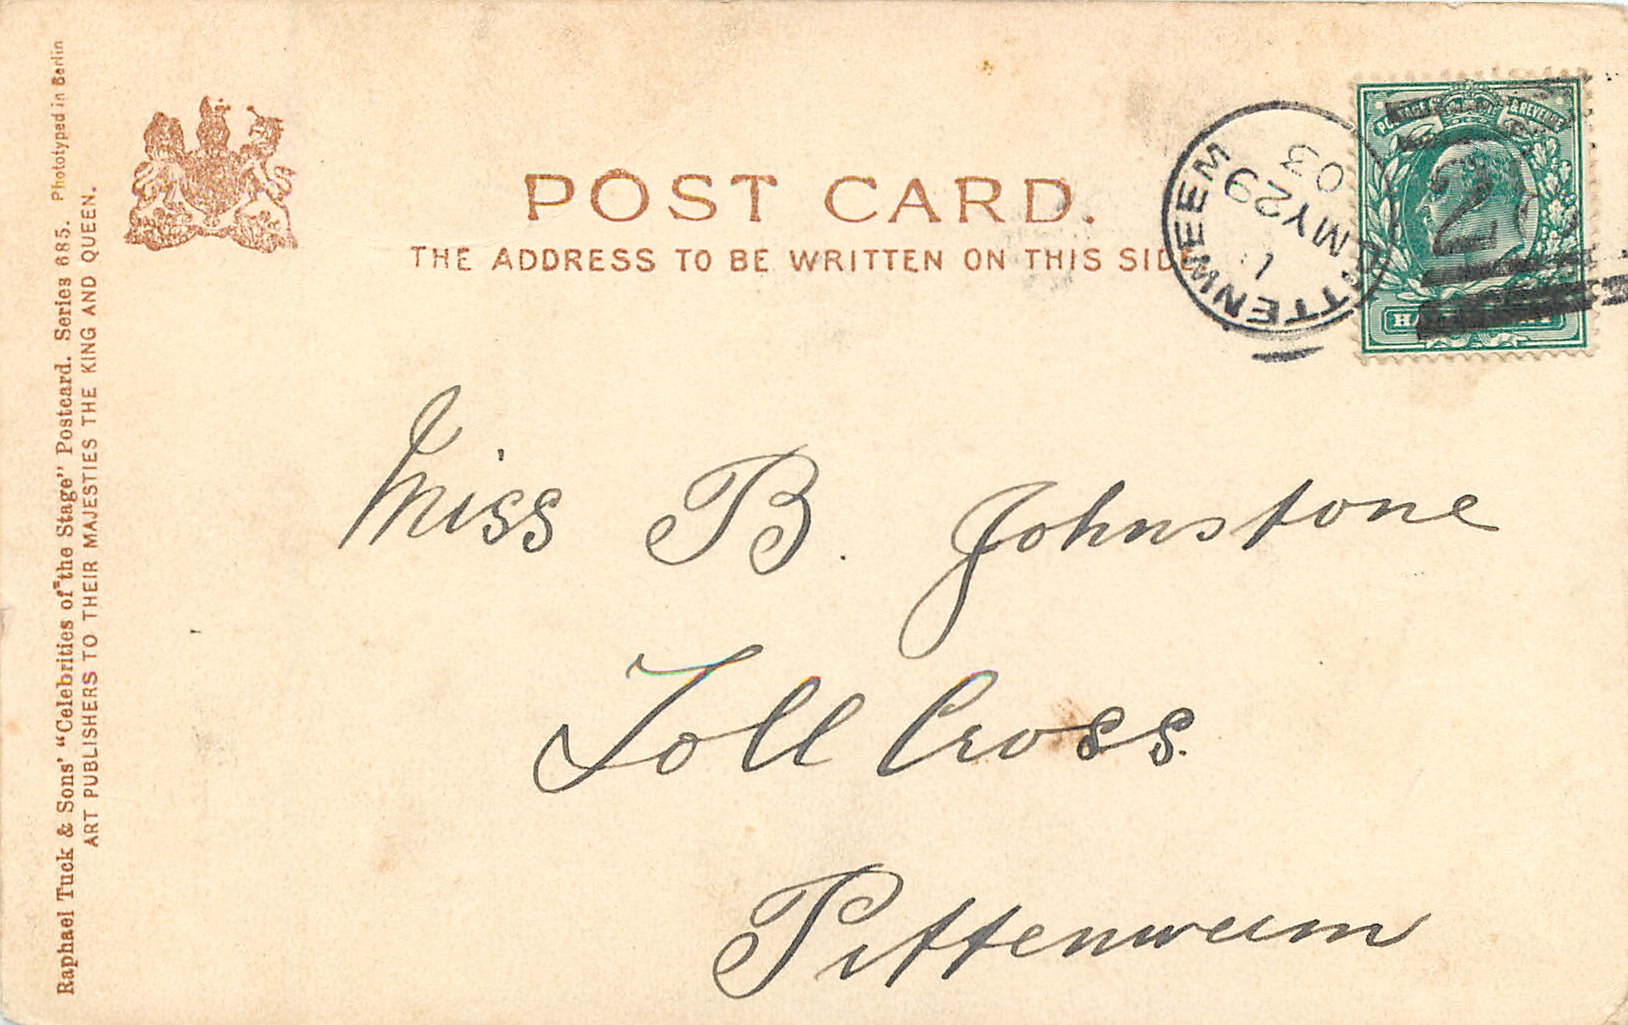 Raphael Tuck & Sons' "Celebrities of the Stage" Postcard. Series 685. Phototyped in Berlin
ART PUBLISHERS TO THEIR MAJESTIES THE KING AND QUEEN.
POST CARD.
THE ADDRESS TO BE WRITTEN ON THIS SIDE
PITTENWEEM
MY 29
03
POSTAGE & REVENUE
2
Miss B. Johnstone
Toll Cross.
Pittenweem